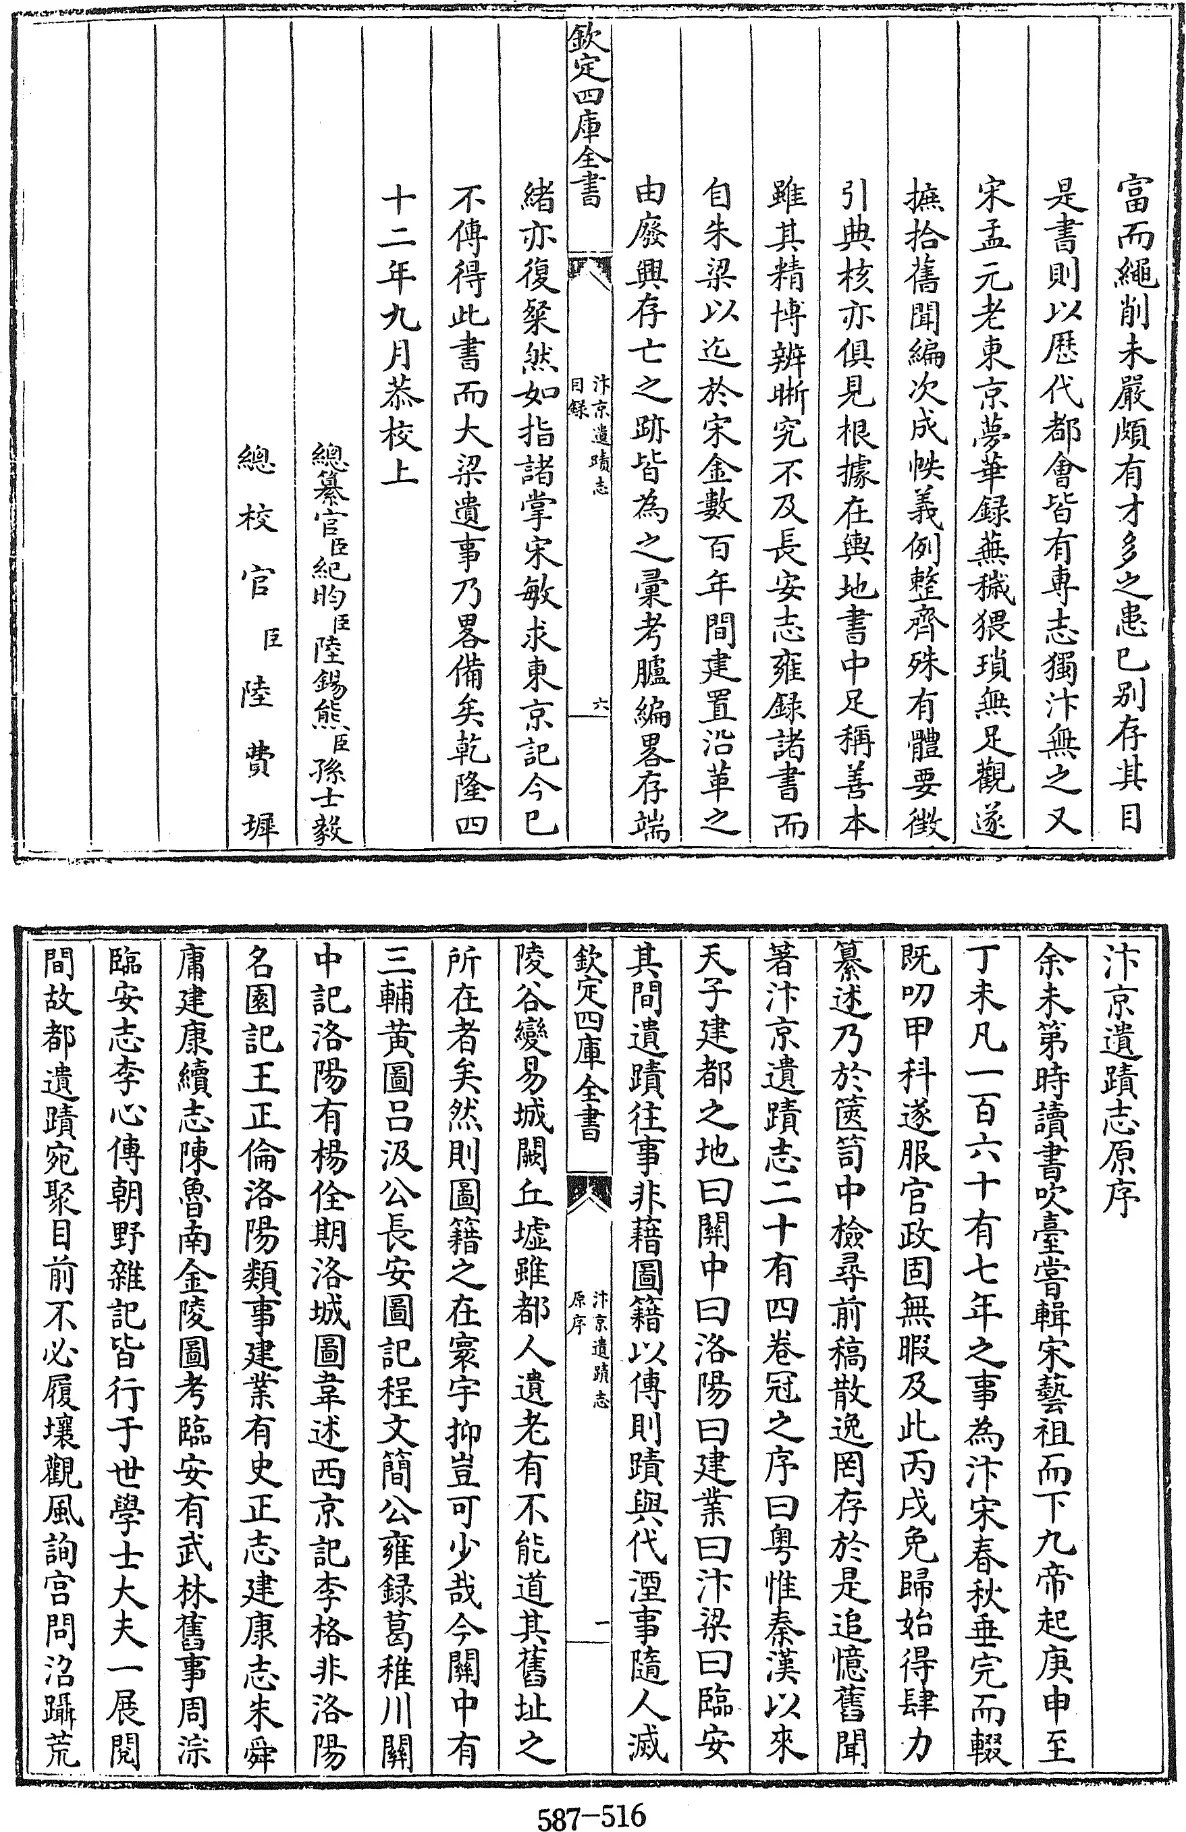 富而繩削未嚴頗有才多之患已别存其目
是書則以厯代都會皆有專志獨汴無之又
宋孟元老東京夢華録蕪穢猥瑣無足觀遂
摭拾舊聞編次成帙義例整齊殊有體要徵
引典核亦俱見根據在輿地書中足稱善本
雖其精博辨晰究不及長安志雍録諸書而
自朱梁以迄於宋金數百年間建置沿革之
由廢興存亡之跡皆為之彚考臚編畧存端
欽定四庫全書
汴京遺蹟志
目録
六
緒亦復粲然如指諸掌宋敏求東京記今已
不傳得此書而大梁遺事乃畧備矣乾隆四
十二年九月恭校上
總纂官臣紀昀臣陸錫熊臣孫士毅
總校官臣陸費墀
汴京遺蹟志原序
余未第時讀書吹臺嘗輯宋藝祖而下九帝起庚申至
丁未凡一百六十有七年之事為汴宋春秋垂完而輟
既叨甲科遂服官政固無暇及此丙戌免歸始得肆力
纂述乃於篋笥中檢尋前稿散逸罔存於是追憶舊聞
著汴京遺蹟志二十有四卷冠之序曰粤惟秦漢以來
天子建都之地曰關中曰洛陽曰建業曰汴梁曰臨安
其間遺蹟往事非藉圖籍以傳則蹟與代湮事隨人滅
欽定四庫全書
汴京遺蹟志
原序
一
陵谷變易城闕丘墟雖都人遺老有不能道其舊址之
所在者矣然則圖籍之在寰宇抑豈可少哉今關中有
三輔黄圖吕汲公長安圖記程文簡公雍録葛稚川關
中記洛陽有楊佺期洛城圖韋述西京記李格非洛陽
名園記王正倫洛陽類事建業有史正志建康志朱舜
庸建康續志陳魯南金陵圖考臨安有武林舊事周淙
臨安志李心傳朝野雜記皆行于世學士大夫一展閲
間故都遺蹟宛聚目前不必履壤觀風詢宫問沼躡荒
587-516